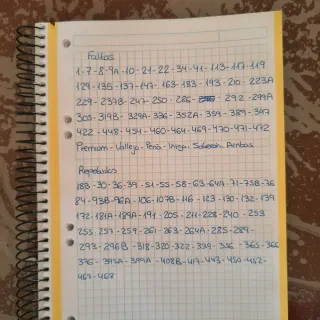 Faltas
1-7-8-9A-10-21-22-34-41-113-117-119
129-135-137-147-163-183-193-210-223A
229-237B-247-250-286-292-299A
305-319B-329A-336-352A-359-389-397
422-448-454-460-464-469-470-471-472
Premium-Vallejo-Peña-Iñigo-
Repetidos
18B-30-36-39-51-55-58-63-64A-71-75B-76
84-93B-96A-106-107B-116-123-130-132-139
172-181A-189A-191-205-211-228-240-253
255-257-259-261-263-264A-285-289-
293-296B-318-320-322-339-356-363-366
376-395A-399A-408B-417-443-450-452-
467-468